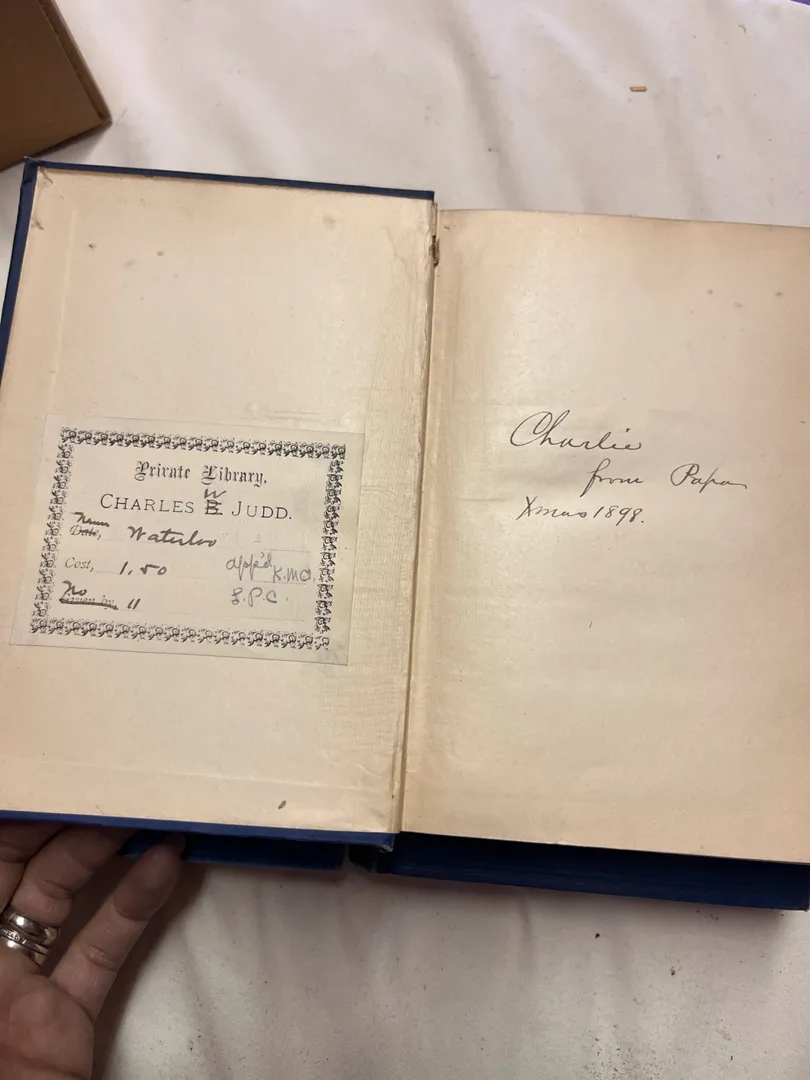 Private Library,
CHARLES W E JUDD.
Name Date, Waterloo
Cost, 1.50 app'd K.M.C.
No 11 J.P.C.
Charlie
from Papa
Xmas 1898.